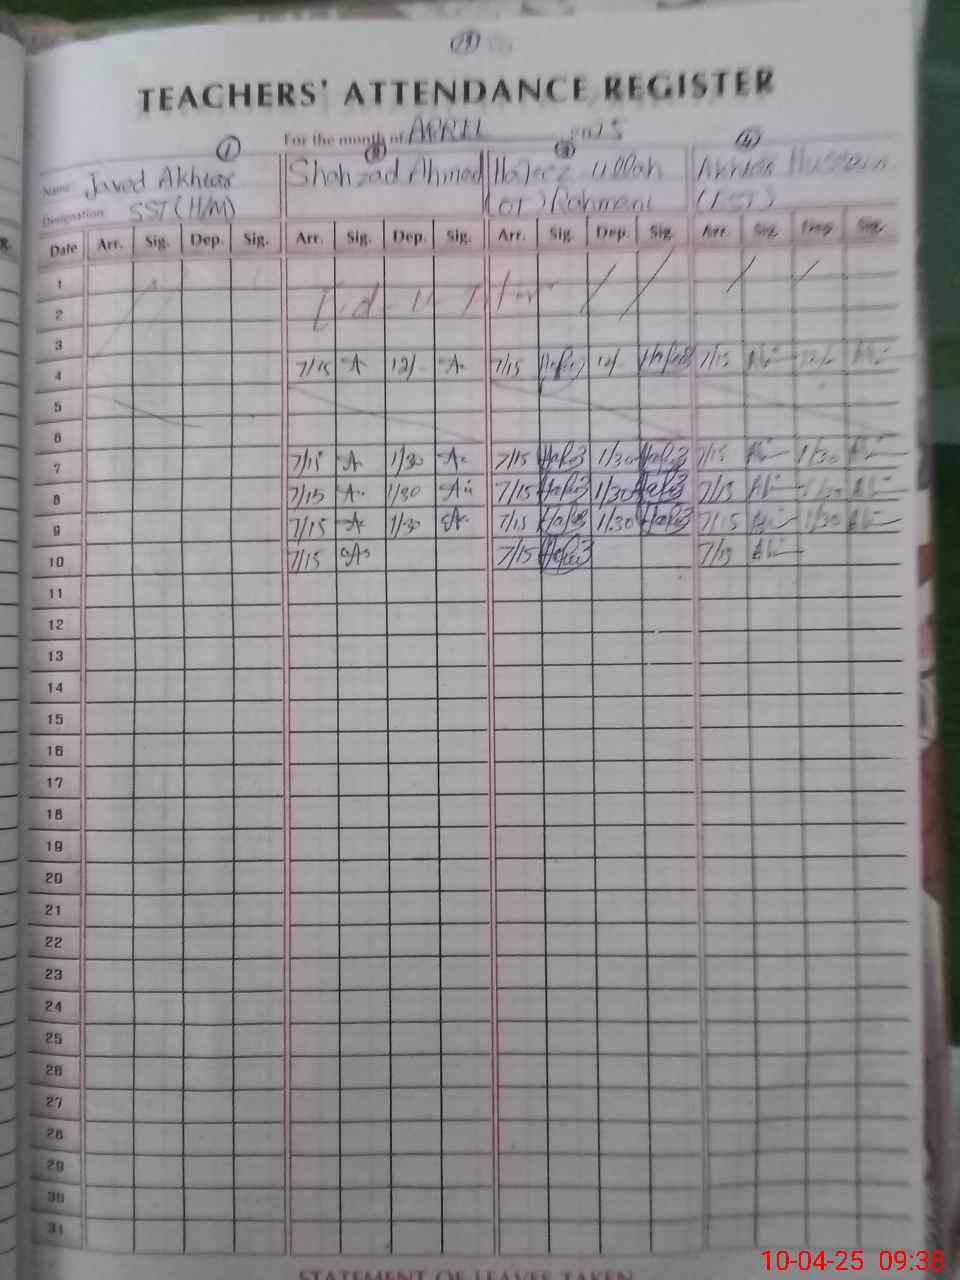 19
TEACHERS' ATTENDANCE REGISTER
For the month of APRIL 2025
1 2 3 4
Name Javed Akhtar Shahzad Ahmad Hafeez ullah Akhtar Hussain
Designation SST (H/M) (OT) Rahmani (PST)
Date Arr. Sig. Dep. Sig. Arr. Sig. Dep. Sig. Arr. Sig. Dep. Sig. Arr. Sig. Dep. Sig.
1
2 Eid-ul-fitar
3
4 7/15 12/- 7/15 12/- 7/15 12/-
5
6
7 7/15 1/30 7/15 Hafiz 1/30 Hafiz 7/15 1/30
8 7/15 1/30 7/15 Hafiz 1/30 Hafiz 7/15 1/30
9 7/15 1/30 7/15 Hafiz 1/30 Hafiz 7/15 1/30
10 7/15 7/15 Hafiz 7/15
11
12
13
14
15
16
17
18
19
20
21
22
23
24
25
26
27
28
29
30
31
STATEMENT OF LEAVES TAKEN
10-04-25 09:38